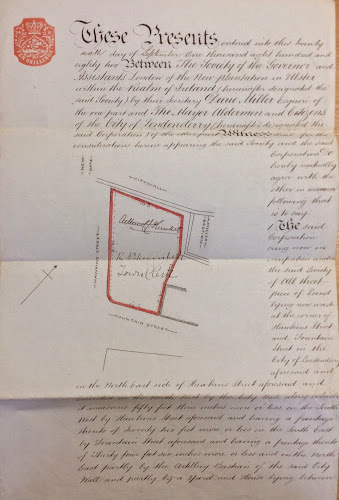 These Presents entered into this twenty
sixth day of September One thousand eight hundred and
eighty two Between The Society of the Governor and
Assistants London of the New plantation in Ulster
within the Realm of Ireland (hereinafter designated the
said Society) by their Secretary Esquire of
the one part and The Mayor Aldermen and Citizens
of the City of Londonderry (hereinafter designated the
said Corporation) of the other part Witness that for the
considerations herein appearing the said Society and the said
Corporation Do
hereby mutually
agree with the
other in manner
following that
is to say:
1. The said
Corporation
being now in
occupation under
the said Society
of All that
piece of Land
lying now waste
at the corner of
Hawkins Street
and Fountain
Street in the
City of Londonderry
aforesaid and
NEW
CITY WALL
HAWKINS STREET
FOUNTAIN STREET
on the North East side of Hawkins Street aforesaid and
by the City Wall along which
it measures fifty feet three inches more or less on the South
West by Hawkins Street aforesaid and having a frontage
thereto of Seventy two feet more or less on the South East
by Fountain Street aforesaid and having a frontage thereto
of Thirty four feet six inches more or less and on the North
East partly by the Artillery Bastion of the said City
Wall and partly by a Yard and House lying between